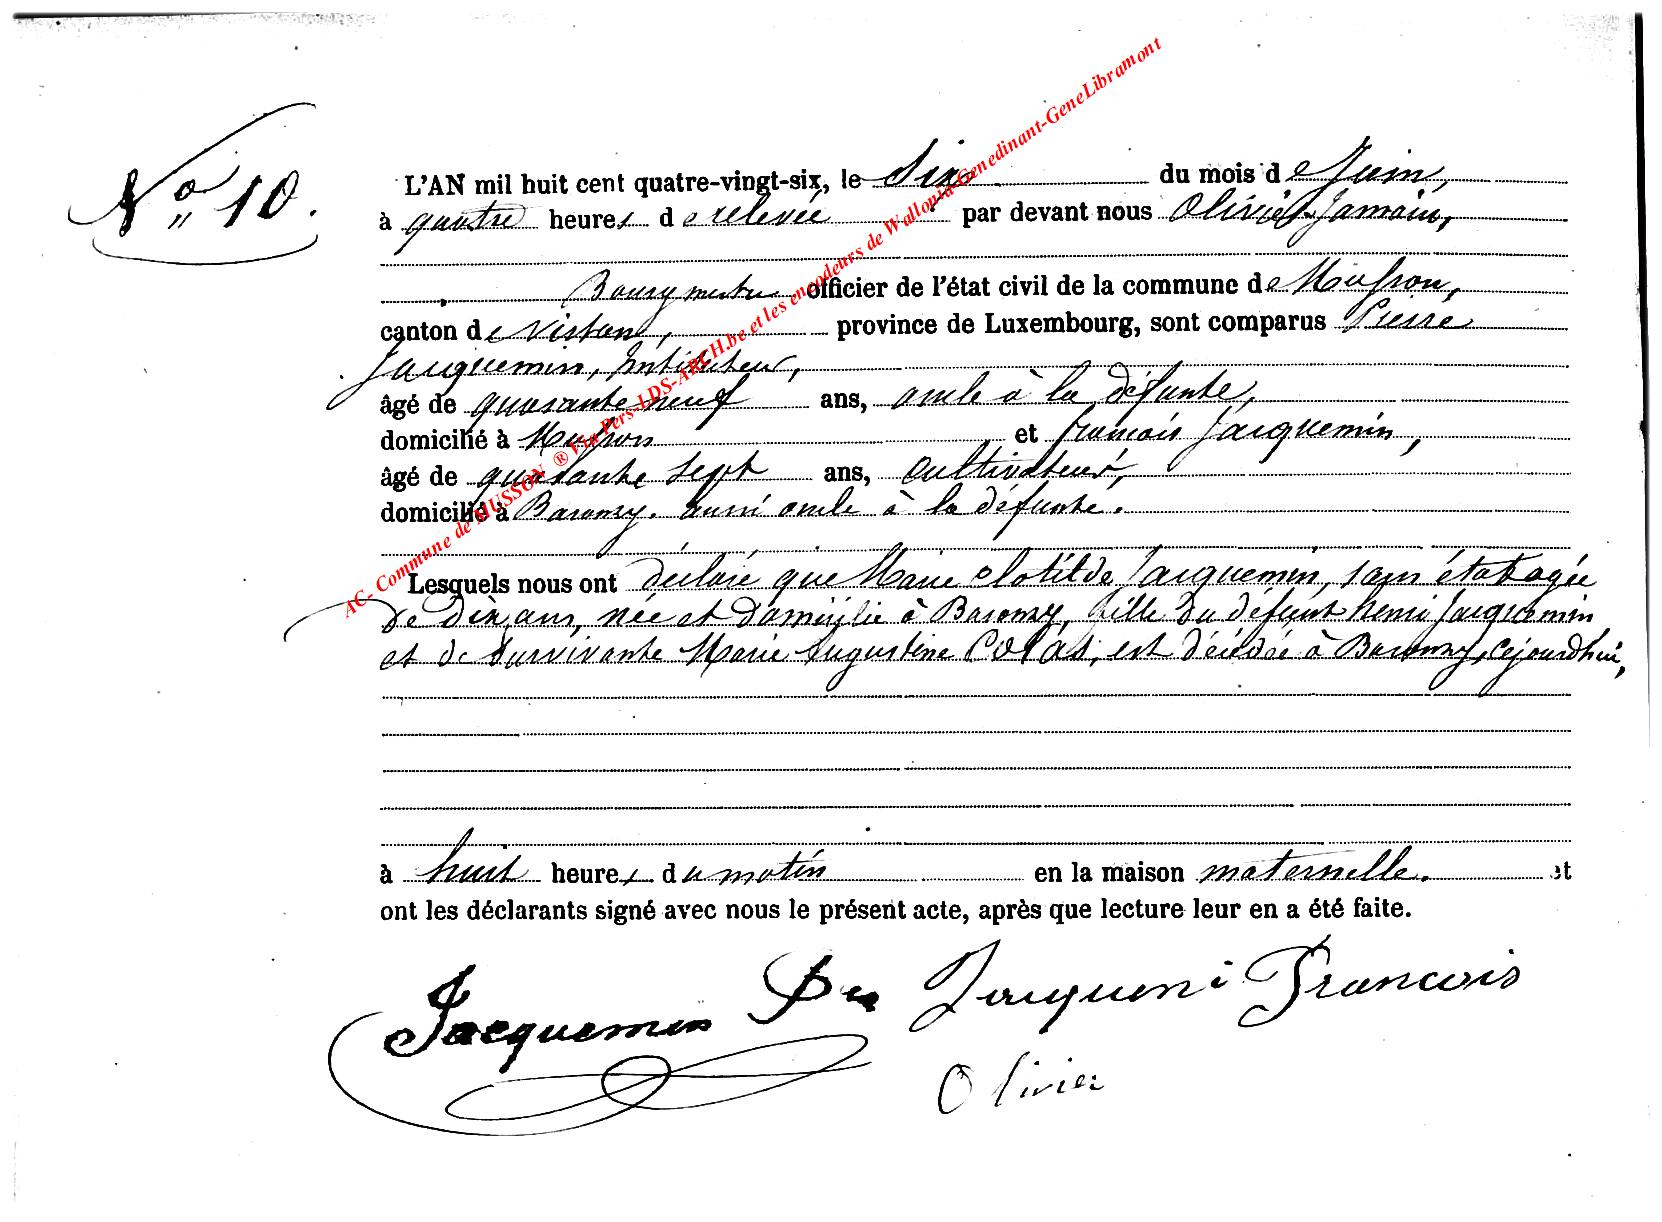 No 10.
L'AN mil huit cent quatre-vingt-six, le Six du mois de Juin,
à quatre heures de relevée par devant nous Olivier Jamain,
Bourgmestre officier de l'état civil de la commune de Musson,
canton de Virton, province de Luxembourg, sont comparus Pierre
Jacquemin, Instituteur,
âgé de quarante neuf ans, oncle à la défunte,
domicilié à Musson et françois Jacquemin,
âgé de quarante sept ans, cultivateur,
domicilié à Baranzy. aussi oncle à la défunte.
Lesquels nous ont déclaré que Marie Clotilde Jacquemin, sans état agée
de dix ans, née et domiciliée à Baranzy, fille du défunt henri Jacquemin
et de survivante Marie Augustine Colas, est décédée à Baranzy, cejourd'hui,
à huit heures du matin en la maison maternelle. et
ont les déclarants signé avec nous le présent acte, après que lecture leur en a été faite.
Jacquemin Jacquemi Francois
Olivier
AC- Commune de MUSSON ® Via Pers-LDS-ARCH.be et les encodeurs de Wallonia-Genedinant-GeneLibramont